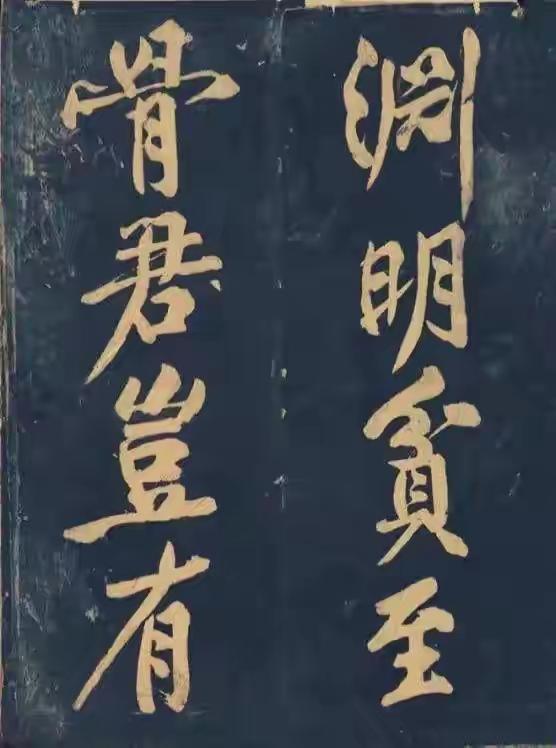 淵明貧至
骨君豈有